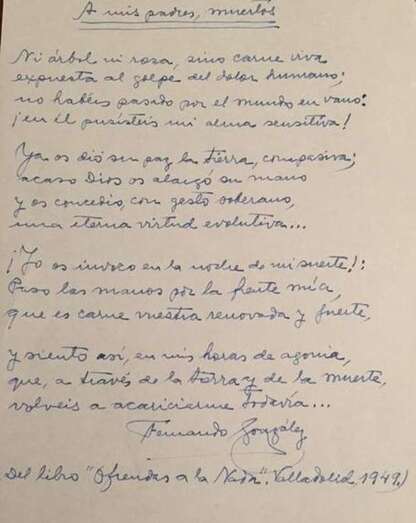 A mis padres, muertos
Ni árbol ni rosa, sino carne viva
expuesta al golpe del dolor humano;
no habéis pasado por el mundo en vano:
¡en él pusísteis mi alma sensitiva!
Ya os dió su paz la tierra, compasiva;
acaso Dios os alargó su mano
y os concedió, con gesto soberano,
una eterna virtud evolutiva...
¡Yo os invoco en la noche de mi suerte!:
Paso las manos por la frente mía,
que es carne vuestra renovada y fuerte,
y siento así, en mis horas de agonía,
que, a través de la tierra y de la muerte,
volveis a acariciarme todavía...
Fernando González
Del libro "Ofrendas a la Nada". Valladolid, 1949.)